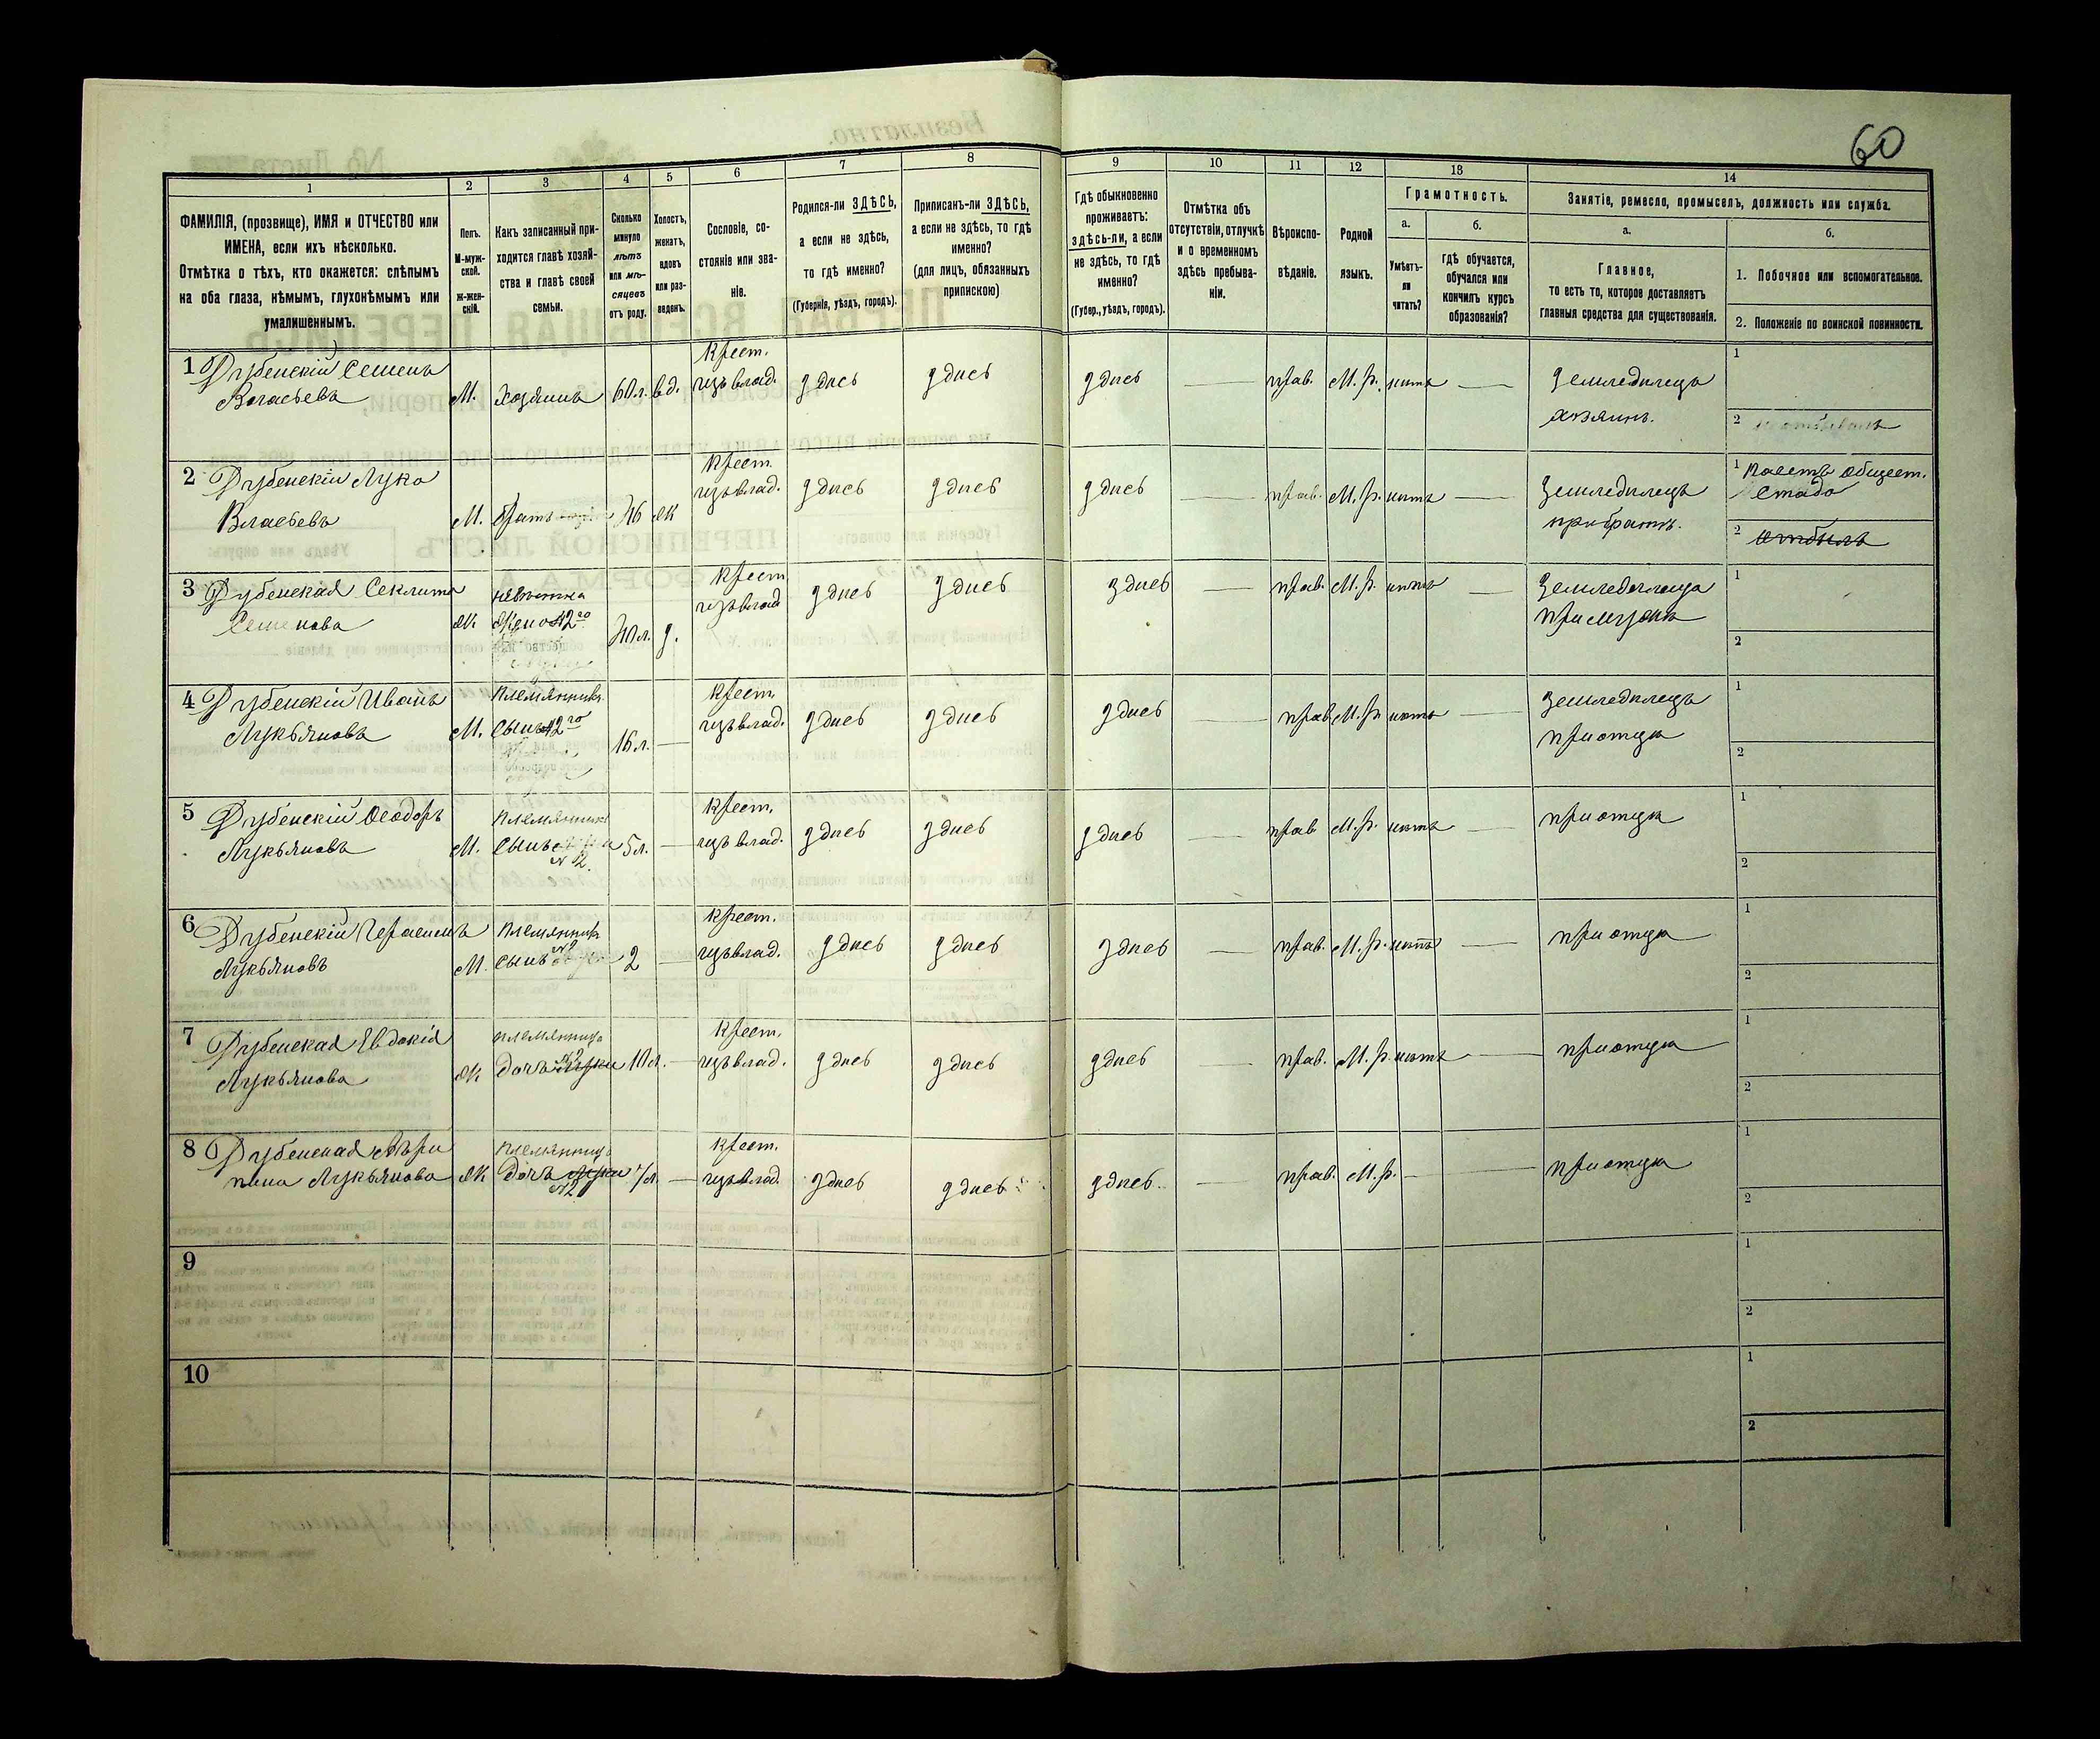 60
1
2
3
4
5
6
7
8
9
10
11
12
13
14
ФАМИЛІЯ, (прозвище), ИМЯ и ОТЧЕСТВО или
ИМЕНА, если ихъ нѣсколько.
Отмѣтка о тѣхъ, кто окажется: слѣпымъ
на оба глаза, нѣмымъ, глухонѣмымъ или
умалишеннымъ.
Полъ.
М-муж-
ской.
Ж-жен-
скій.
Какъ записанный при-
ходится главѣ хозяй-
ства и главѣ своей
семьи.
Сколько
минуло
лѣтъ
или мѣ-
сяцевъ
отъ роду.
Холостъ,
женатъ,
вдовъ
или раз-
веденъ.
Сословіе, со-
стояніе или зва-
ніе.
Родился-ли ЗДѢСЬ,
а если не здѣсь,
то гдѣ именно?
(Губернія, уѣздъ, городъ).
Приписанъ-ли ЗДѢСЬ,
а если не здѣсь, то гдѣ
именно?
(для лицъ, обязанныхъ
припискою)
Гдѣ обыкновенно
проживаетъ:
здѣсь-ли, а если
не здѣсь, то гдѣ
именно?
(Губер., уѣздъ, городъ).
Отмѣтка объ
отсутствіи, отлучкѣ
и о временномъ
здѣсь пребыва-
ніи.
Вѣроиспо-
вѣданіе.
Родной
языкъ.
Грамотность.
а.
Умѣетъ-
ли
читать?
б.
гдѣ обучается,
обучался или
кончилъ курсъ
образованія?
Занятіе, ремесло, промыселъ, должность или служба.
а.
Главное,
то есть то, которое доставляетъ
главныя средства для существованія.
б.
1. Побочное или вспомогательное.
2. Положеніе по воинской повинности.
1 Дубенскій Семенъ
Власьевъ
М. Хозяинъ 60 л. вд.
Крест.
изъ влад. здѣсь здѣсь здѣсь — прав. М. р. нѣтъ —
Земледѣлецъ
хозяинъ.
1
2
2 Дубенскій Лука
Власьевъ
М. братъ 46 Ж
Крест.
изъ влад. здѣсь здѣсь здѣсь — прав. М. р. нѣтъ —
Земледѣлецъ
при братѣ.
1 Пасетъ общест.
стадо
2
3 Дубенская Секлита
Семенова
Ж
невѣстка
Жена №2го
40 л. з.
Крест.
изъ влад здѣсь здѣсь здѣсь — прав. М. р. нѣтъ —
Земледѣлица
при мужѣ
1
2
4 Дубенскій Иванъ
Лукьяновъ
М.
Племянникъ
Сынъ №2го
16 л. —
Крест.
изъ влад. здѣсь здѣсь здѣсь — прав. М. р. нѣтъ —
Земледѣлецъ
при отцѣ
1
2
5 Дубенскій Ѳеодоръ
Лукьяновъ
М.
Племянникъ
Сынъ
№2.
5 л. —
Крест.
изъ влад. здѣсь здѣсь здѣсь — прав. М. р. нѣтъ —
при отцѣ
1
2
6 Дубенскій Герасимъ
Лукьяновъ
М.
Племянникъ
Сынъ №2
2 —
Крест.
изъ влад. здѣсь здѣсь здѣсь — прав. М. р. нѣтъ —
при отцѣ
1
2
7 Дубенская Евдокія
Лукьянова
Ж
племянница
дочь №2 Луки 10 л. —
Крест.
изъ влад. здѣсь здѣсь здѣсь — прав. М. р. нѣтъ —
при отцѣ
1
2
8 Дубенская
Лукьянова Ж
племянница
дочь Луки
№2
—
Крест.
изъ влад. здѣсь здѣсь здѣсь. — прав. М. р. —
при отцѣ
1
2
9
1
2
10
1
2